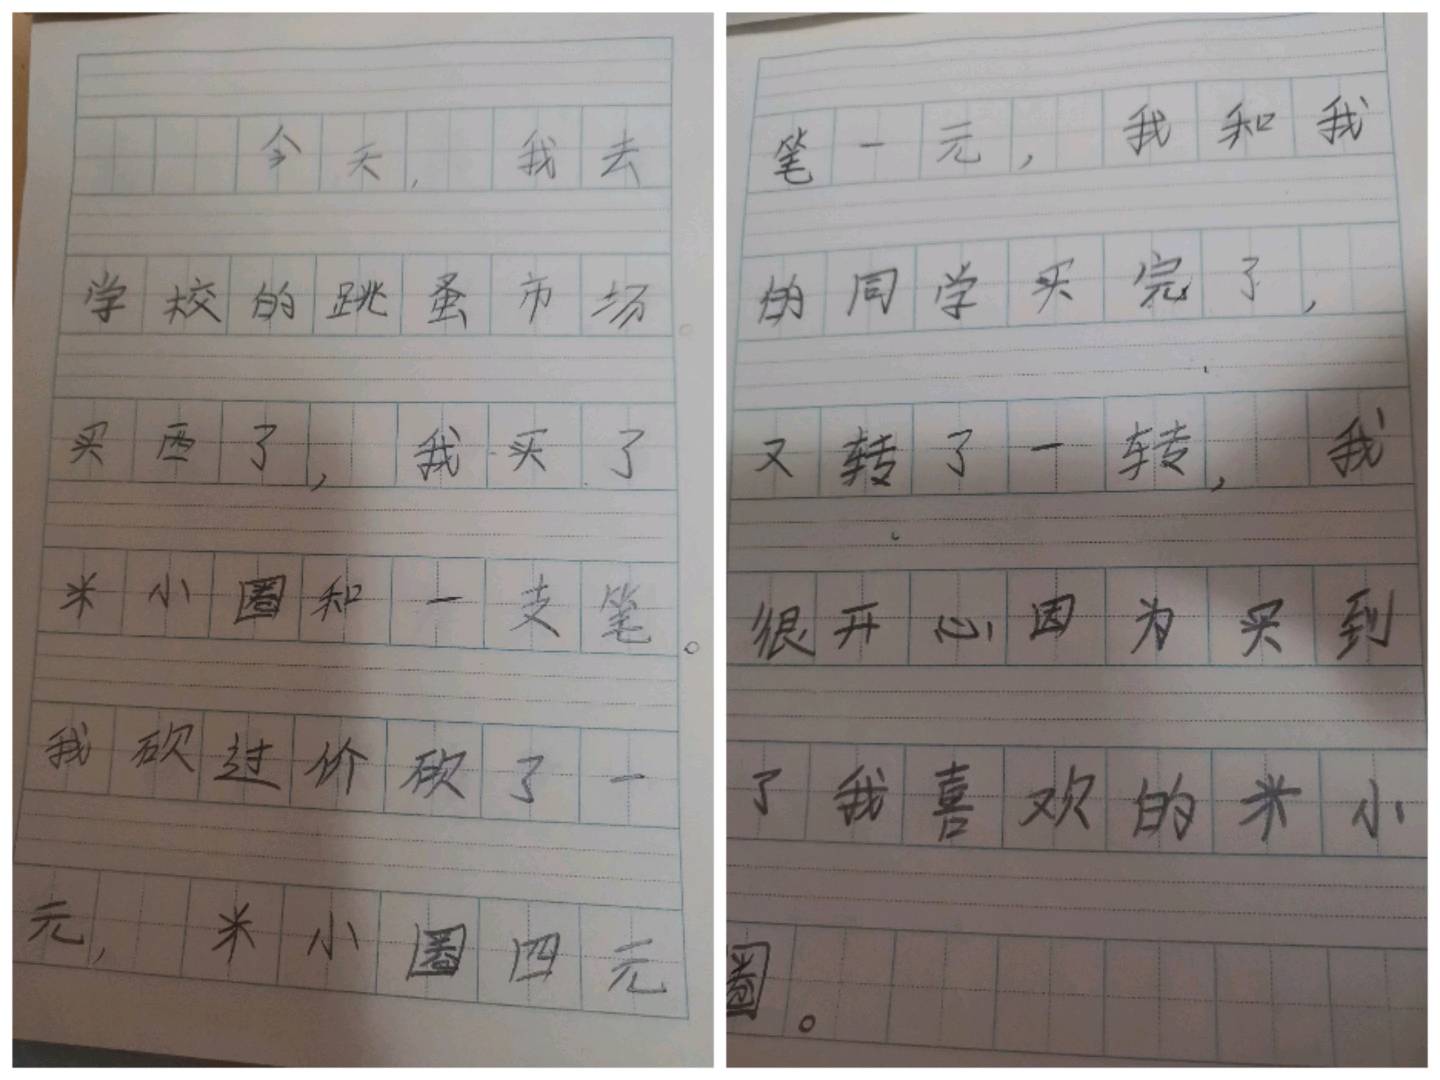 今天，我去
学校的跳蚤市场
买西了，我买了
米小圈和一支笔。
我砍过价砍了一
元，米小圈四元
笔一元，我和我
的同学买完了，
又转了一转，我
很开心因为买到
了我喜欢的米小
圈。